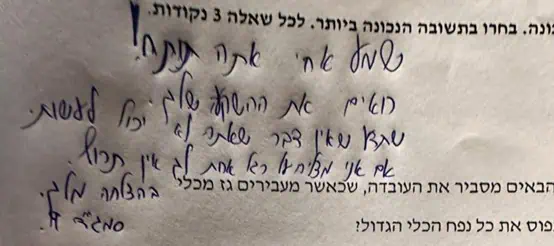 ונה. בחרו בתשובה הנכונה ביותר. לכל שאלה 3 נקודות.
נשמע אחי אתה תותח!
רואים את ההשקעה שלך. יכול לעשות.
שתדע שאין דבר שאתה לא
אם אני מצליח על רגל אחת לך אין תרוץ.
הבאים מסביר את העובדה, שכאשר מעבירים גז מכלי
בהצלחה מלך.
סמב"ך
פוס את כל נפח הכלי הגדול?